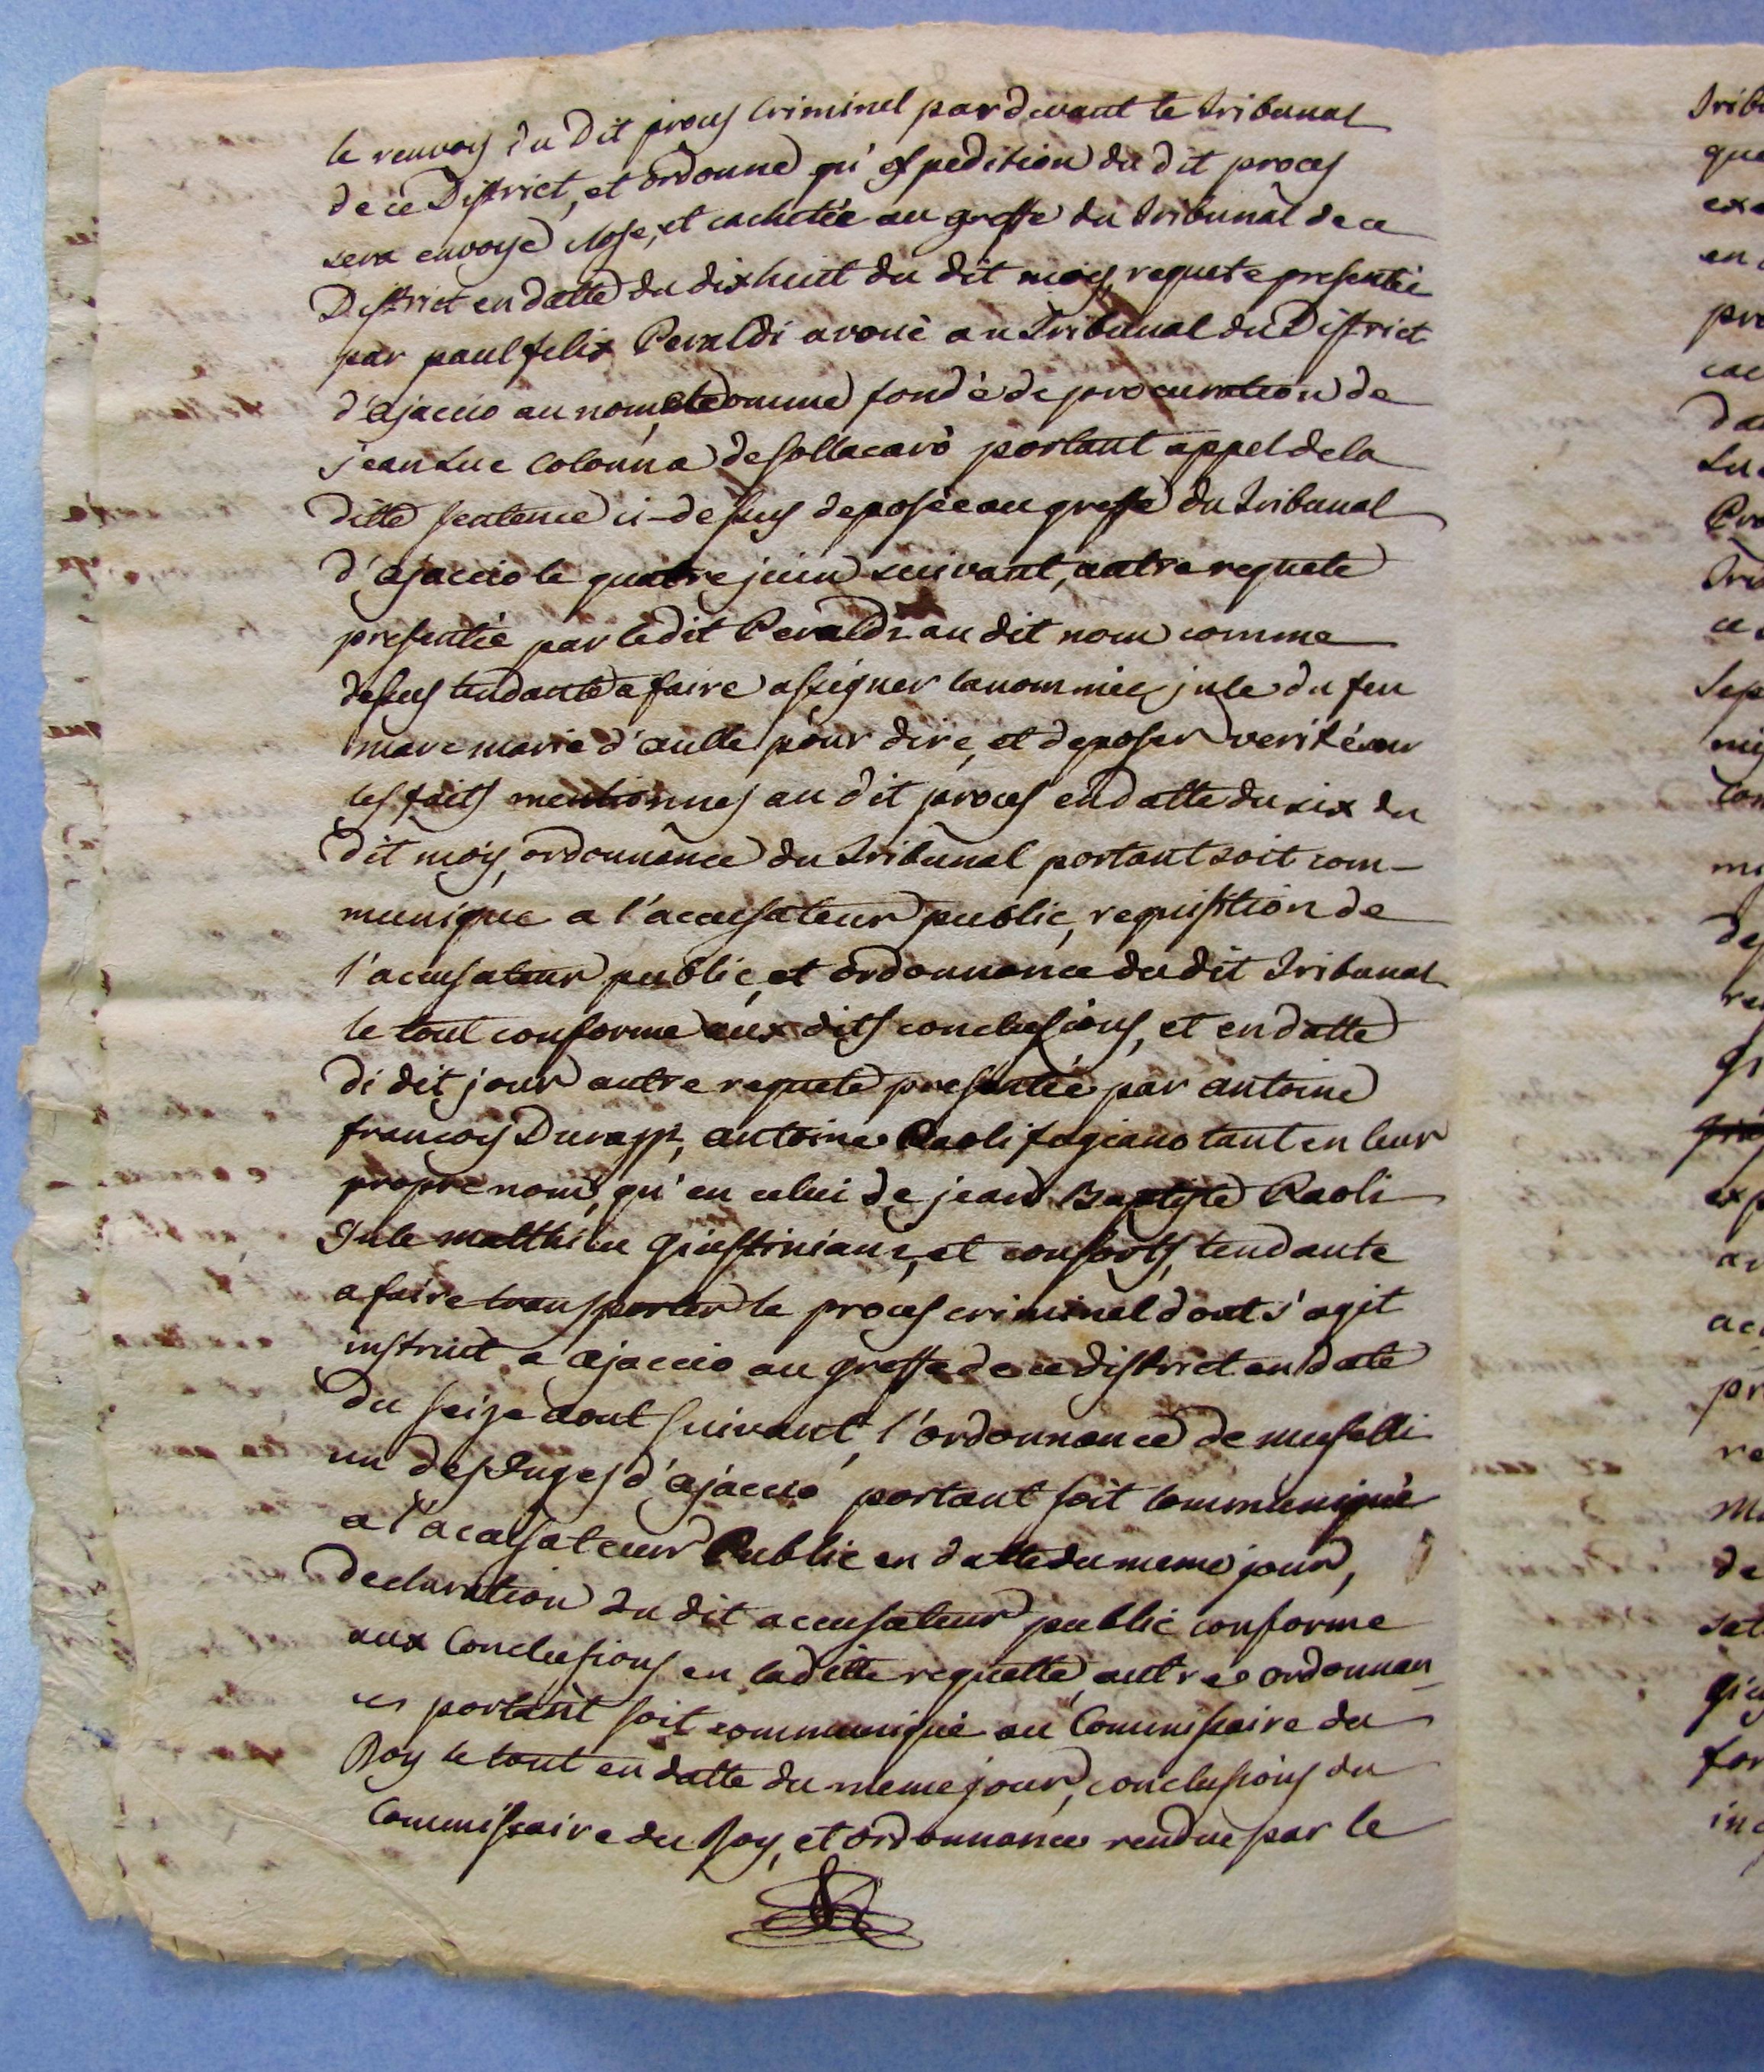 le renvoy du Dit proces Criminel pardevant le tribunal
de ce District, et ordonne qu'expedition du dit proces
sera envoyé close, et cachetée au greffe du tribunal de ce
District en datte du dixhuit du dit moys, requete presentée
par paul felix Peraldi avoué au Tribunal du District
d'ajaccio au nom, et comme fondé de procuration de
jean Luc Colonna de Sollacarò portant appel de la
ditte sentence ci-dessus deposée au greffe du tribunal
d'ajaccio le quatre juin suivant, autre requete
presentée par le dit Peraldi au dit nom comme
dessus tendante a faire assigner la nommée jule du feu
marc marie d'aulle pour dire, et deposer verité sur
les faits mentionnes au dit proces en datte du six du
dit moys, ordonnance du tribunal portant soit com-
munique a l'accusateur public, requisition de
l'accusateur public, et ordonnance du dit tribunal
le tout conforme aux dits conclusions, et en datte
di dit jour autre requete presentée par antoine
françoys Durazzi, antoine Paoli fogiano tant en leur
propre nom, qu'en celui de jean Baptiste Paoli
Jule matthieu Giustiniani, et consorts, tendante
a faire transporter le proces criminel dont s'agit
instruit a ajaccio au greffe de ce district en date
du seize aout suivant, l'ordonnance de muselli
un des Juges d'ajaccio portant soit communiqué
a l'acausateur Public en datte du meme jour,
declaration du dit accusateur public conforme
aux Conclusions en la ditte requette, autres ordonnan-
ces portant soit communiqué au Commissaire du
Roy le tout en datte du meme jour, conclusions du
Commissaire du Roy, et ordonnance rendue par le